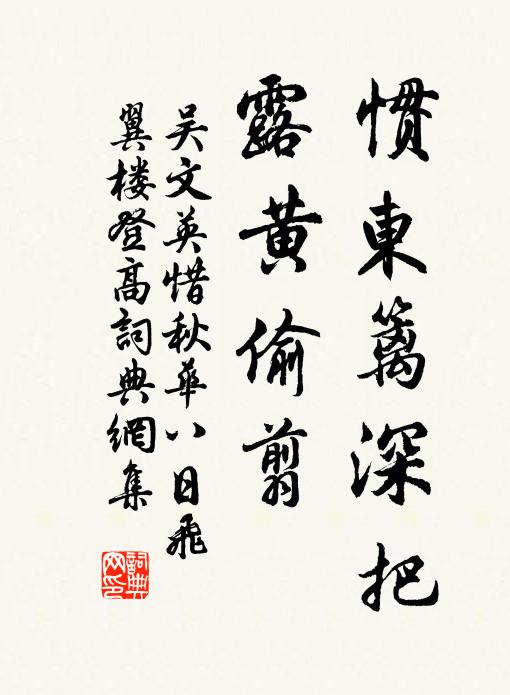 慣東篱深把
露黃偷翦
吴文英惜秋華八日飛
翼楼登高詞典網集
詞典
网印